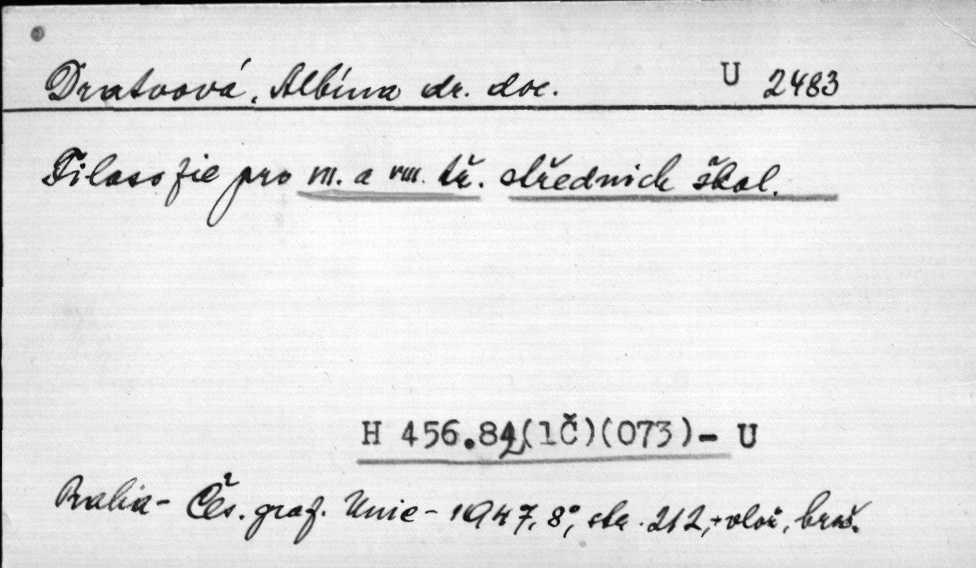 Dratvová, Albína dr. doc. U 2483
Filosofie pro VII. a VIII. tř. středních škol.
H 456.842(1Č)(073)- U
Praha - Čes. graf. Unie - 1947, 8°, str. 212,+vlož., brož.